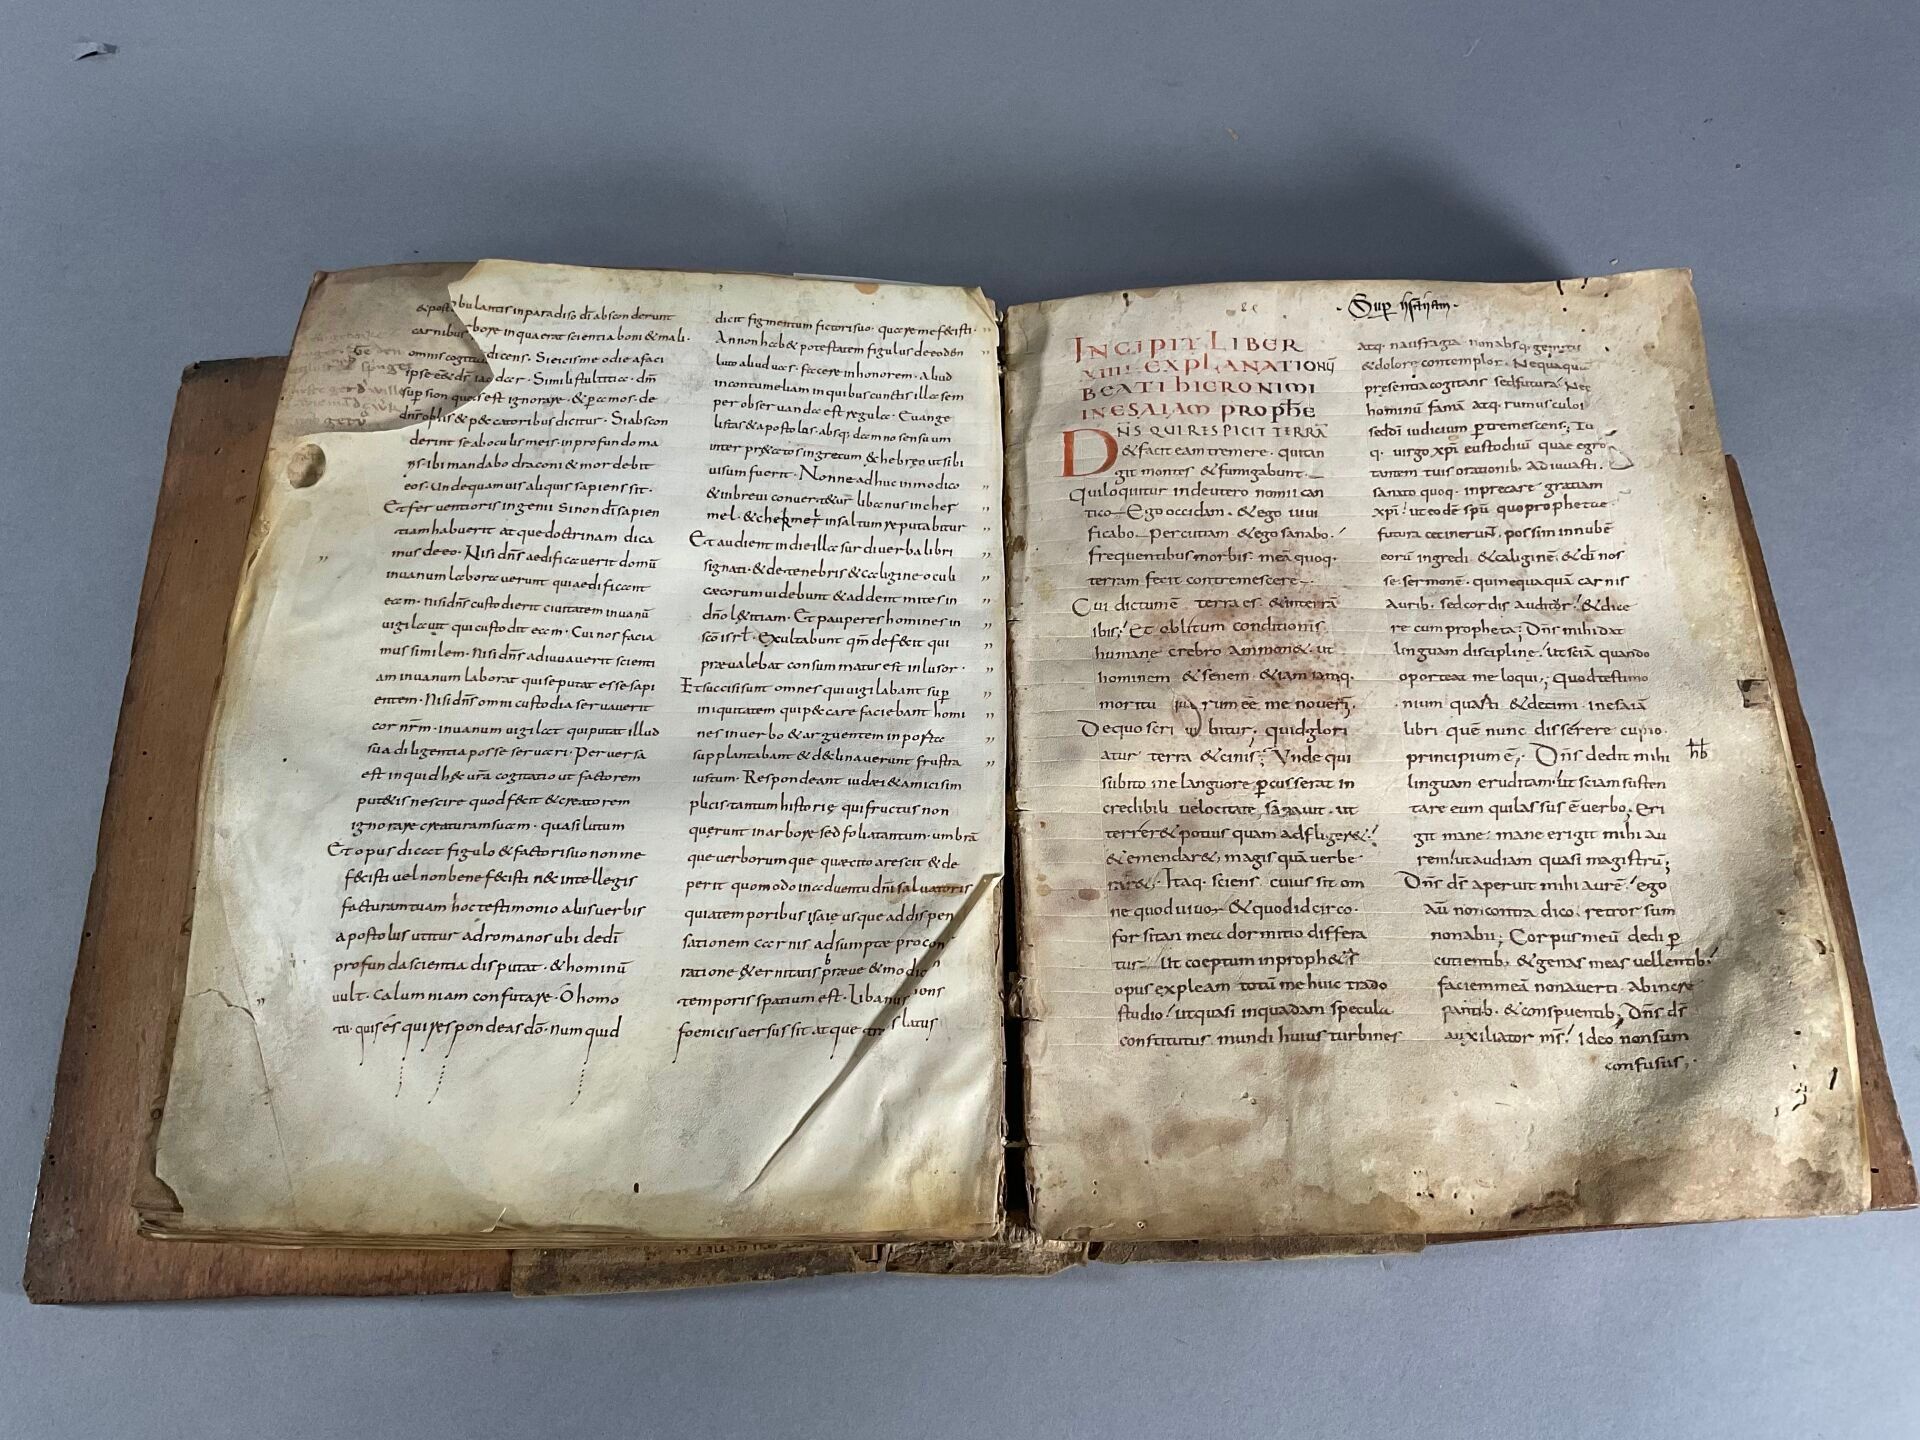 bulantis inparadiso dī absconderunt
carnibus boxe inquaerat scientia boni & mali.
omnis dicens. Sieicisme odie afaci
ipse dcer. Similistultitice. dm̄
sup sion quoest ignoraxe. & pcemos. de
dnr̄ oblis & p&catoribus dicitur. Siabscon
derint se aboculis meis inprofundo ma
ris. ibi mandabo draconi & mordebit
eos. Undequamuis aliquis sapiens sit.
Et feruentioris ingenii Sinon dī sapien
tiam habuerit atque doctrinam dica
mus deeo. Nisi dn̄s aedificauerit domū
inuanum laborauerunt quiaedificant
eam. nisi dn̄s custodierit ciuitatem inuanū
uigilauit qui custodit eam. Cui nos facia
mus similem. Nisi dn̄s adiuuauerit scienti
am inuanum laborat quiseputat essesapi
entem. Nisi dn̄s omni custodia seruauerit
cor nr̄m. inuanum uigilat quiputat illud
sua diligentia posse seruari. Peruersa
est inquid h&c ura cogitatio ut factorem
put&is nescire quod f&cit & creatorem
ignorare creaturam suam. quasi lutum
Et opus dicat figulo & factori suo non me
f&cisti uel non bene f&cisti n&c intellegis
facturam tuam hoc testimonio aliis uerbis
apostolus utitur adromanos ubi dedī
profunda scientia disputat. & hominū
uult. calumniam confutare. O homo
tu. quis és qui respondeas dō. numquid
dicit figmentum fictori suo. quare me f&cisti.
An non hab& potestatem figulus deeodēn
luto aliud uas. facere in honorem. aliud
incontumeliam in quibus cunctis illa sem
per obseruanda est regula. Euange
listas & apostolos. absq; damno sensuum
inter pr&aetos ingrecum & hebreo ut sibi
uisum fuerit. Nonne adhuc inmodico
& inbreui conuert&ur libanus incher
mel. & chermel insaltum reputabitur
Et audient indie illa surdi uerba libri
signati. & de tenebris & caligine oculi
caecorum uidebunt & addent mites in
dn̄o l&titiam. Et pauperes homines in
scō isrl. Exultabunt qm̄ def&cit qui
praeualebat consummatus est inlusor.
Et succisi sunt omnes qui uigilabant sup
iniquitatem qui p&care faciebant homi
nes in uerbo & arguentem in porta
supplantabant & declinauerunt frustra
iustum. Respondeant iudei & amici sim
plicis tantum historię qui fructus non
querunt in arbore sed folia tantum. umbrā
que uerborum que quae cito arescit & de
perit quomodo inaduentu dn̄i saluatoris
quia temporibus isaie usque addispen
sationem carnis adsumptae pro con
ratione &ernitatis praeue & modic
temporis spatium est. Libanus ions
foenicis uersus sit atque latus
Sup hisaiam.
INCIPIT LIBER
XIIII EXPLANATIONŪ
BEATI HIERONIMI
IN ESAIAM PROPHE
DN̄S QUI RESPICIT TERRĀ
& facit eam tremere. qui tan
git montes & fumigabunt.
Qui loquitur indeutero nomii can
tico. Ego occidam. & ego uiui
ficabo. percutiam & ego sanabo.
frequentibus morbis. meā quoq.
terram fecit contremescere.
Cui dictumē terra es. & interrā
ibis; Et oblitum conditionis
humane crebro ammon&. ut
hominem & senem. & iam iamq.
moritu rum eē. me nouerī.
De quo scri bitur. quid glori
atur terra & cinis; Unde qui
subito me languore pcusserat in
credibili uelocitate sanauit. ut
terrer& potius quam adfliger&.
& emendar&, magis quā uerbe
rar&. Itaq. sciens cuius sit om
ne quod uiuo. & quod idcirco.
forsitan meā dormitio differa
tur. Ut coeptum in proph&
opus expleam totū me huic trado
studio. ut quasi inquadam specula
constitutus mundi huius turbines
atq. naufragia non absq. gemitu
& dolore contemplor. Nequaquā
presentia cogitans sed futura. Nec
hominū famā atq. rumusculoi
sed dī iudicium ptremescens; Tu
q. uirgo xpi eustochiū quae egro
tantem tuis orationib. adiuuasti.
sanato quoq. inprecare gratiam
xpi. ut eodē spū quo prophetue
futura cecinerunt. possim innubē
eorū ingredi. & caliginē. & dī nos
se sermonē. qui nequaquā carnis
aurib. sed cordis auditor. & dice
re cum propheta; Dn̄s mihi dat
linguam discipline. ut sciā quando
oporteat me loqui; Quod testimo
nium quarti & decimi. in esaiā
libri quē nunc disserere cupio.
principium ē; Dn̄s dedit mihi
linguam eruditam. ut sciam susten
tare eum qui lassus ē uerbo; Eri
git mane. mane erigit mihi au
rem. ut audiam quasi magistrū;
Dn̄s ds̄ aperuit mihi aurē. ego
aū non contra dico. retrorsum
non abii; Corpus meū dedi p
cutientib. & genas meas uellentib.
faciem meā non auerti. Ab incre
pantib. & conspuentib; Dn̄s ds̄
auxiliator ms̄. ideo nonsum
confusus;